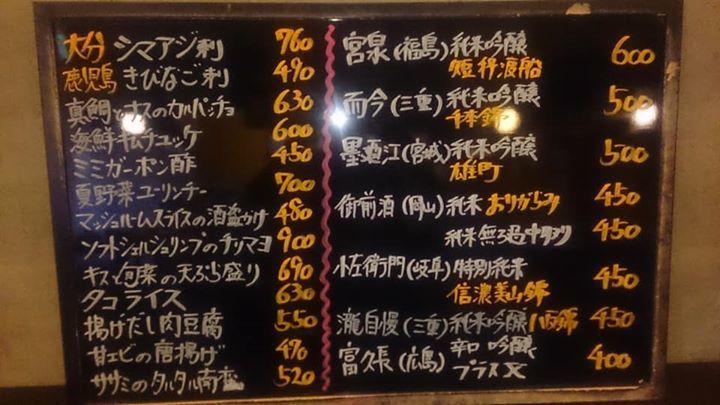 大分 シマアジ刺 760
鹿児島 きびなご刺 490
真鯛とナスのカルパッチョ 630
海鮮キムチユッケ 600
ミミガーポン酢 450
夏野菜ユーリンチー 700
マッシュルームスライスの酒盗がけ 480
ソフトシェルシュリンプのチリマヨ 900
キスと旬菜の天ぷら盛り 690
タコライス 630
揚げだし肉豆腐 550
甘エビの唐揚げ 490
ササミのタルタル南蛮 520
宮泉(福島)純米吟醸 600
短稈渡船
而今(三重)純米吟醸 500
千本錦
墨廼江(宮城)純米吟醸 500
雄町
御前酒(岡山)純米 おりがらみ 450
純米無ろ過中汲り 450
小左衛門(岐阜)特別純米 450
信濃美山錦
瀧自慢(三重)純米吟醸 八反錦 450
富久長(広島)辛口 吟醸 400
プラスX